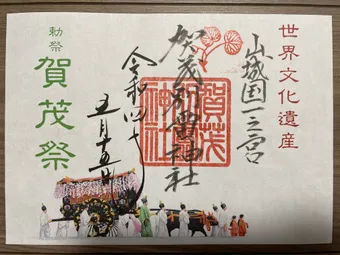 世界文化遺産
山城国一之宮
賀茂別雷神社
令和四年
五月十五日
勅祭
賀茂祭
賀茂
別雷
神社